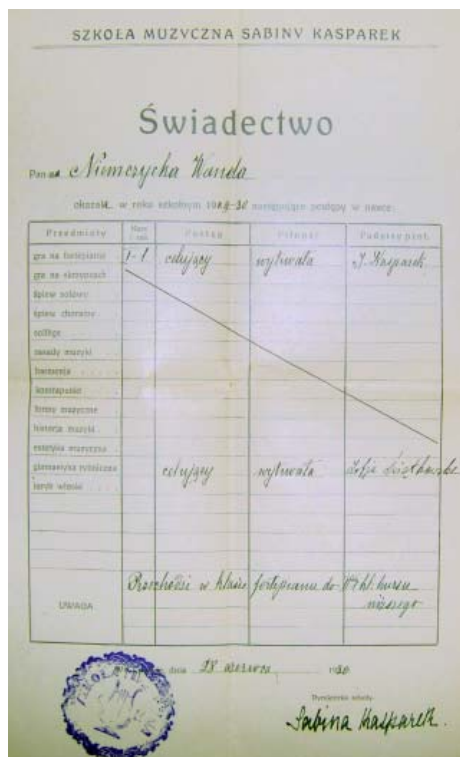 SZKOŁA MUZYCZNA SABINY KASPAREK
Świadectwo
Panna Niemczycka Wanda
okazała w roku szkolnym 1929-30 następujące postępy w nauce:
Przedmioty Postęp Pilność Podpisy prof.
gra na fortepianie celujący wytrwała S. Kasparek
gra na skrzypcach
śpiew solowy
śpiew chóralny
solfège
zasady muzyki
harmonja
kontrapunkt
formy muzyczne
historja muzyki
estetyka muzyczna
gimnastyka rytmiczna celujący wytrwała Zofja
język włoski
Przechodzi w klasie fortepianu do kl. kursu
UWAGA niższego
dnia 28 czerwca 1930
Sabina Kasparek.